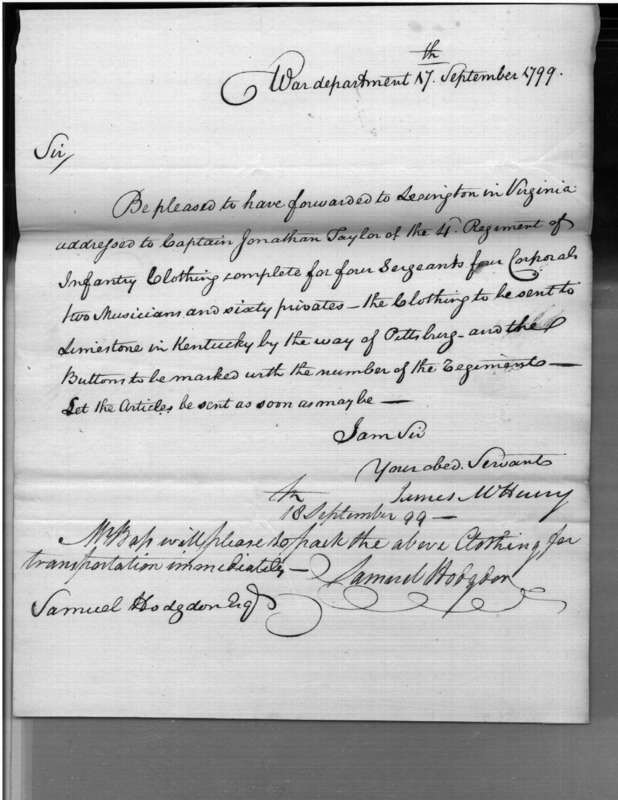 War department 17.th September 1799.
Sir,
Be pleased to have forwarded to Lexington in Virginia
addressed to Captain Jonathan Taylor of the 4th Regiment of
Infantry Clothing complete for four Sergeants four Corporals
two Musicians and sixty privates — the Clothing to be sent to
Limestone in Kentucky by the way of Pittsburg — and the
Buttons to be marked with the number of the Regiment —
Let the Articles be sent as soon as may be —
I am Sir
Your obed. Servant
James McHenry
18th September 99 —
Mr Bass will please to pack the above Clothing for
transportation immediately — Samuel Hodgdon
Samuel Hodgdon Esqr